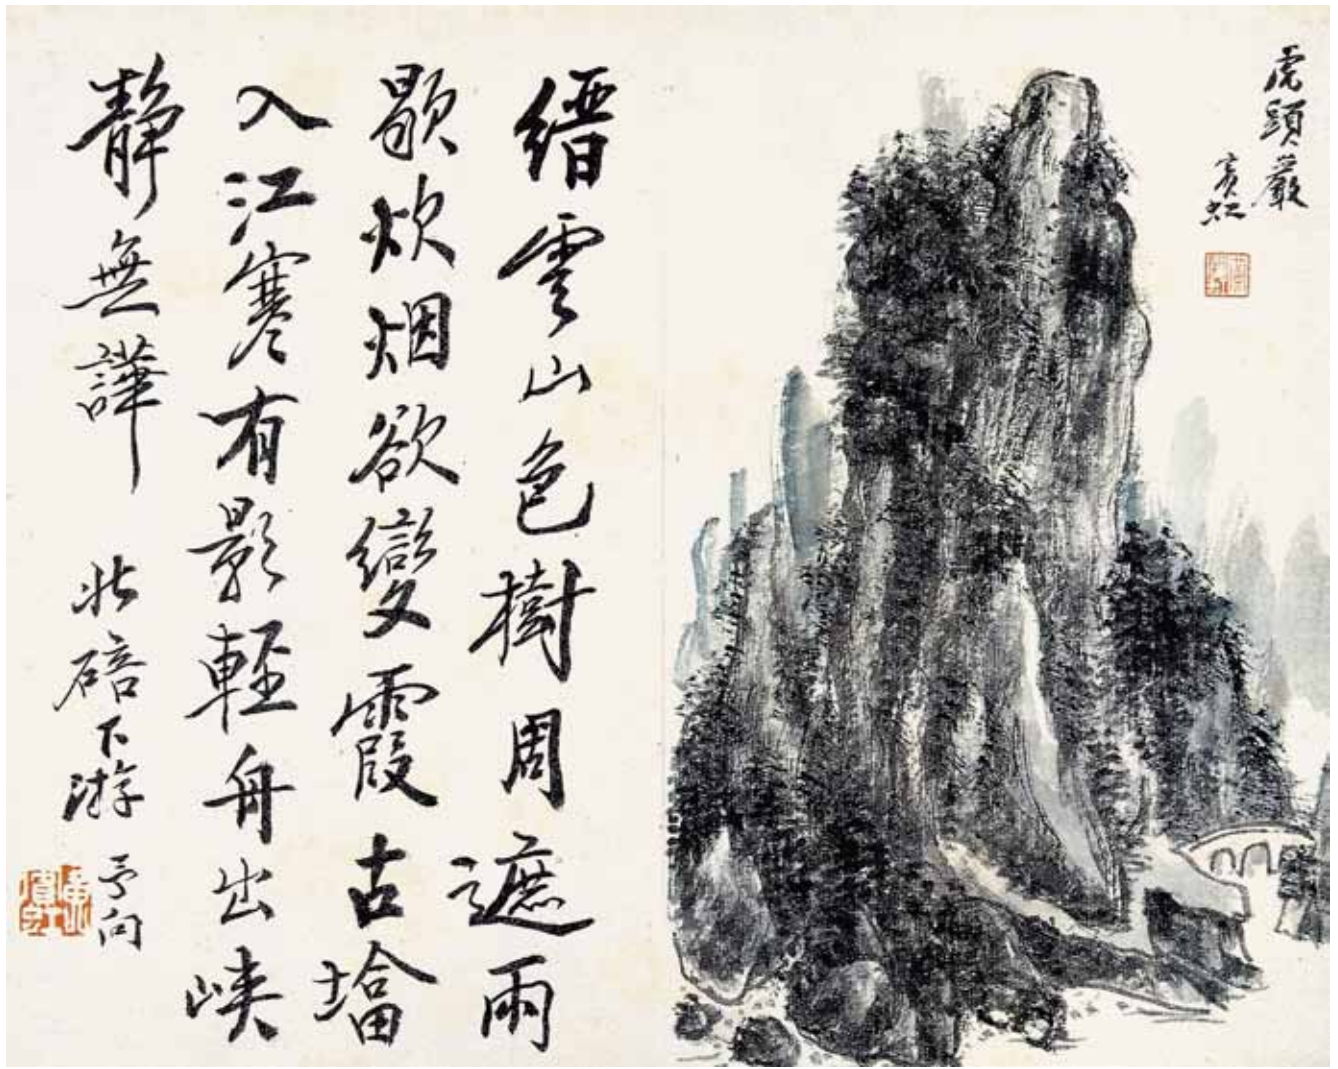 虎頭巖
賓虹
縉雲山色樹周遮雨
歇炊烟欲變霞古墖
入江寒有影輕舟出峽
靜無譁 北碚下游 予向